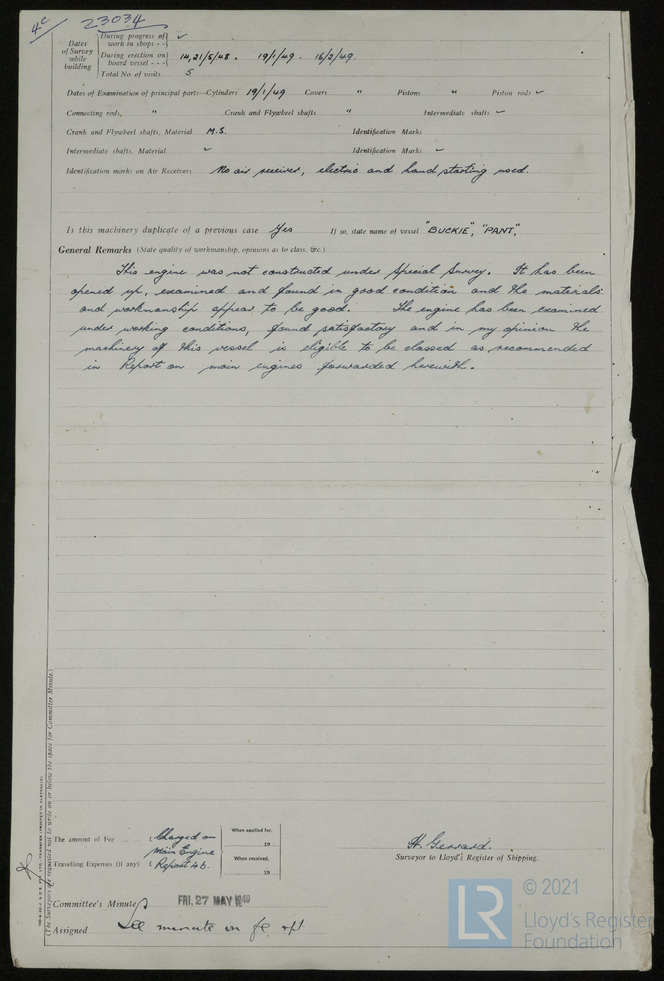 4c 23034
Dates of Survey while building
During progress of work in shops - - ✓
During erection on board vessel - - - 14, 21/5/48. 19/1/49. 16/2/49.
Total No. of visits 5
Dates of Examination of principal parts—Cylinders 19/1/49 Covers " Pistons " Piston rods ✓
Connecting rods, " Crank and Flywheel shafts " Intermediate shafts ✓
Crank and Flywheel shafts, Material M.S. Identification Marks
Intermediate shafts, Material ✓ Identification Marks ✓
Identification marks on Air Receivers No air receiver, electric and hand starting used.
Is this machinery duplicate of a previous case Yes If so, state name of vessel "BUCKIE", "PANT",
General Remarks (State quality of workmanship, opinions as to class, &c.)
This engine was not constructed under Special Survey. It has been
opened up, examined and found in good condition and the materials
and workmanship appear to be good. The engine has been examined
under working conditions, found satisfactory and in my opinion the
machinery of this vessel is eligible to be classed as recommended
in Report on main engines forwarded herewith.
(The Surveyors are requested not to write on or below the space for Committee Minute.)
The amount of Fee £ Charged on
Main Engine
Travelling Expenses (if any) £ Report 4b.
When applied for,
19
When received,
19
H. Gerrard.
Surveyor to Lloyd's Register of Shipping.
Committee's Minute FRI. 27 MAY 1949
Assigned See minute on fe rpt
© 2021
LR
Lloyd's Register
Foundation